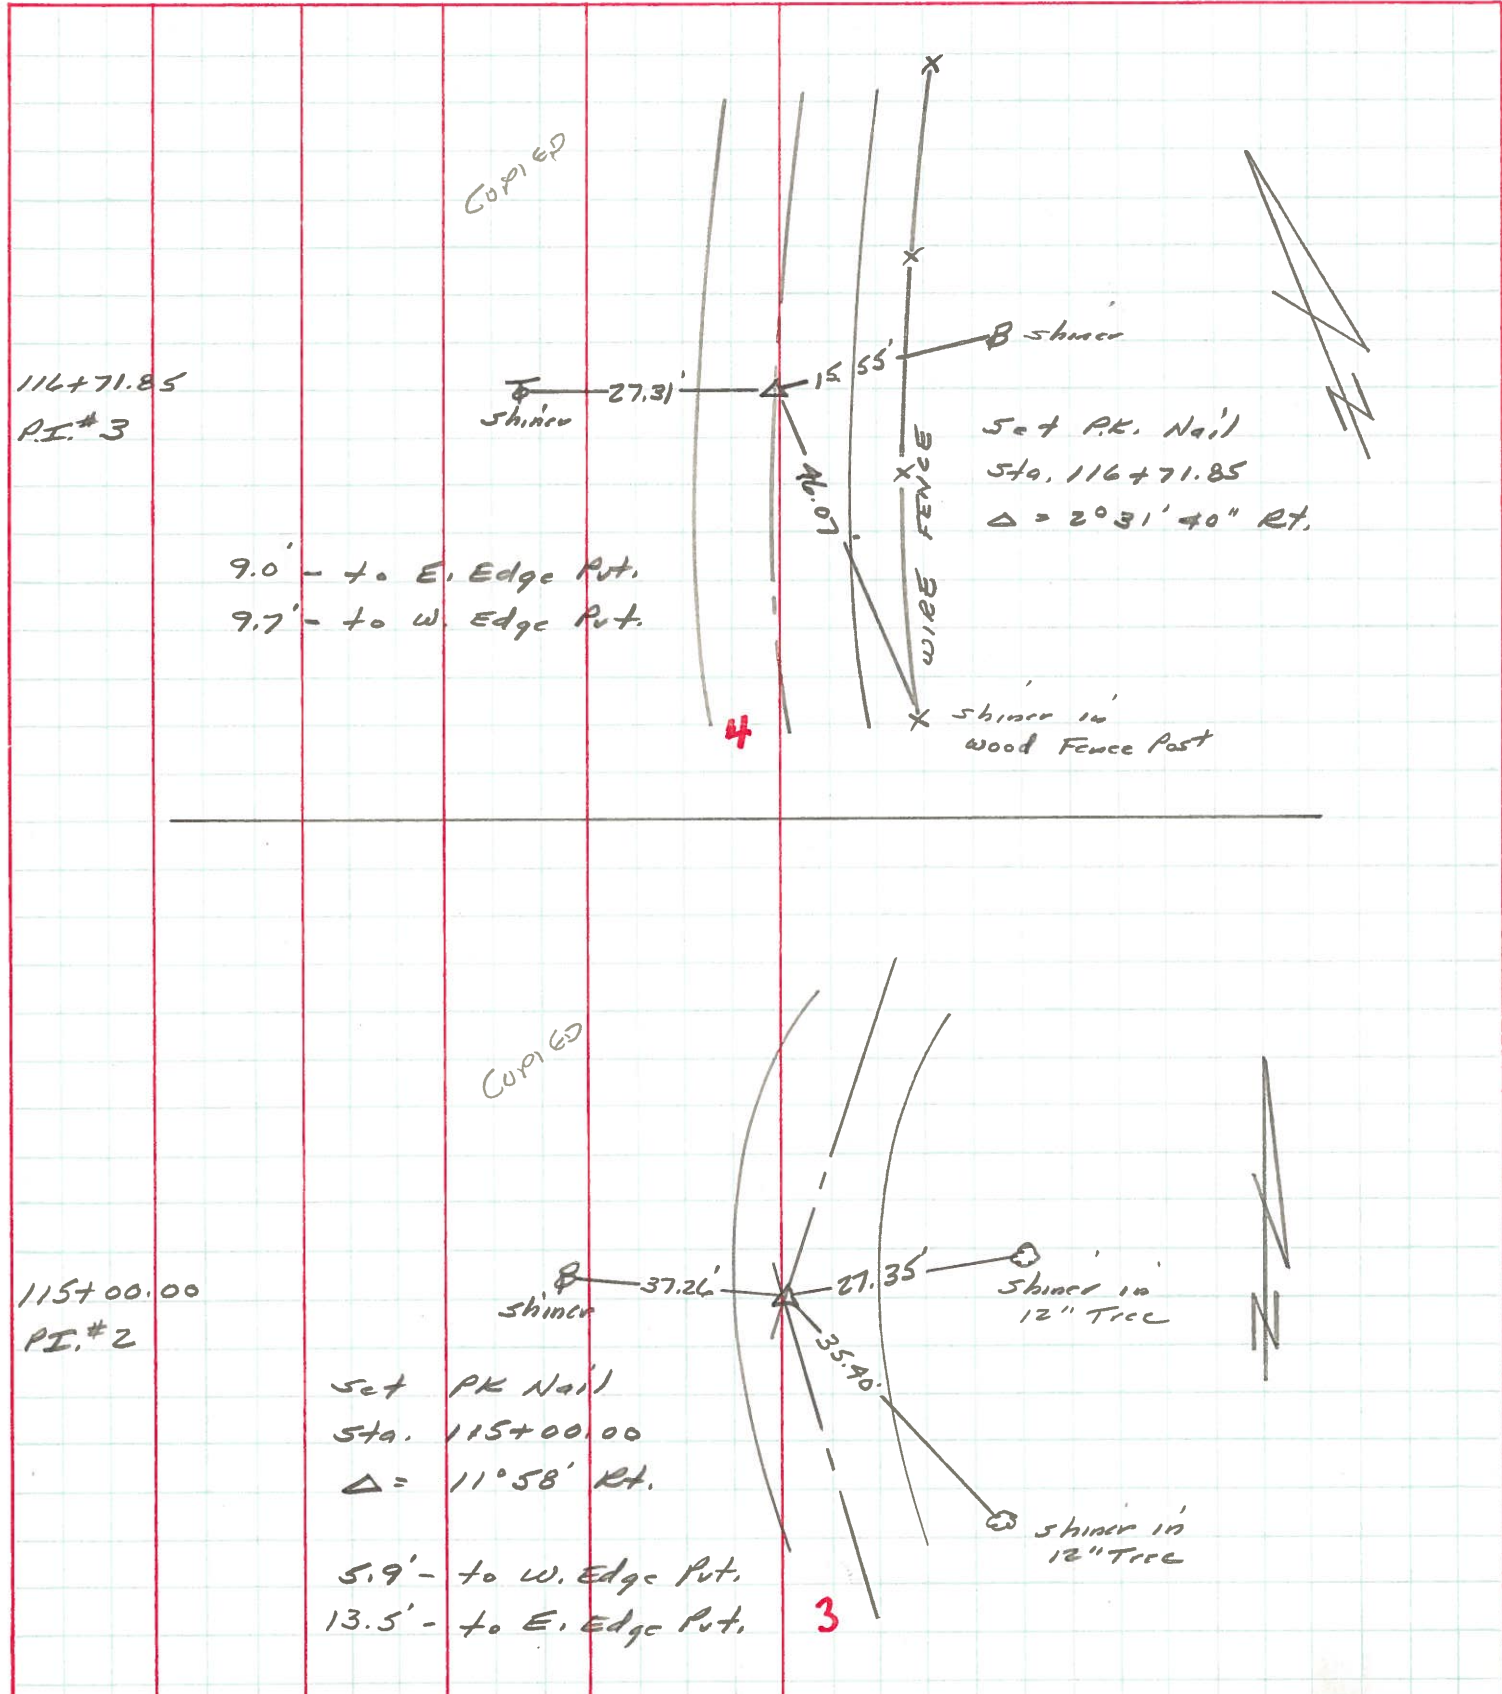 COPIED
116+71.85
P.I.#3
shiner
27.31'
15.55'
shiner
46.07'
WIRE FENCE
Set P.K. Nail
Sta. 116+71.85
Δ = 2°31'40" Rt.
9.0' - to E. Edge Pvt.
9.7' - to W. Edge Pvt.
4
shiner in
wood Fence Post
COPIED
115+00.00
P.I.#2
shiner
37.26'
27.35'
shiner in
12" Tree
35.40'
N
N
Set PK Nail
Sta. 115+00.00
Δ = 11°58' Rt.
shiner in
12" Tree
5.9' - to W. Edge Pvt.
13.5' - to E. Edge Pvt.
3